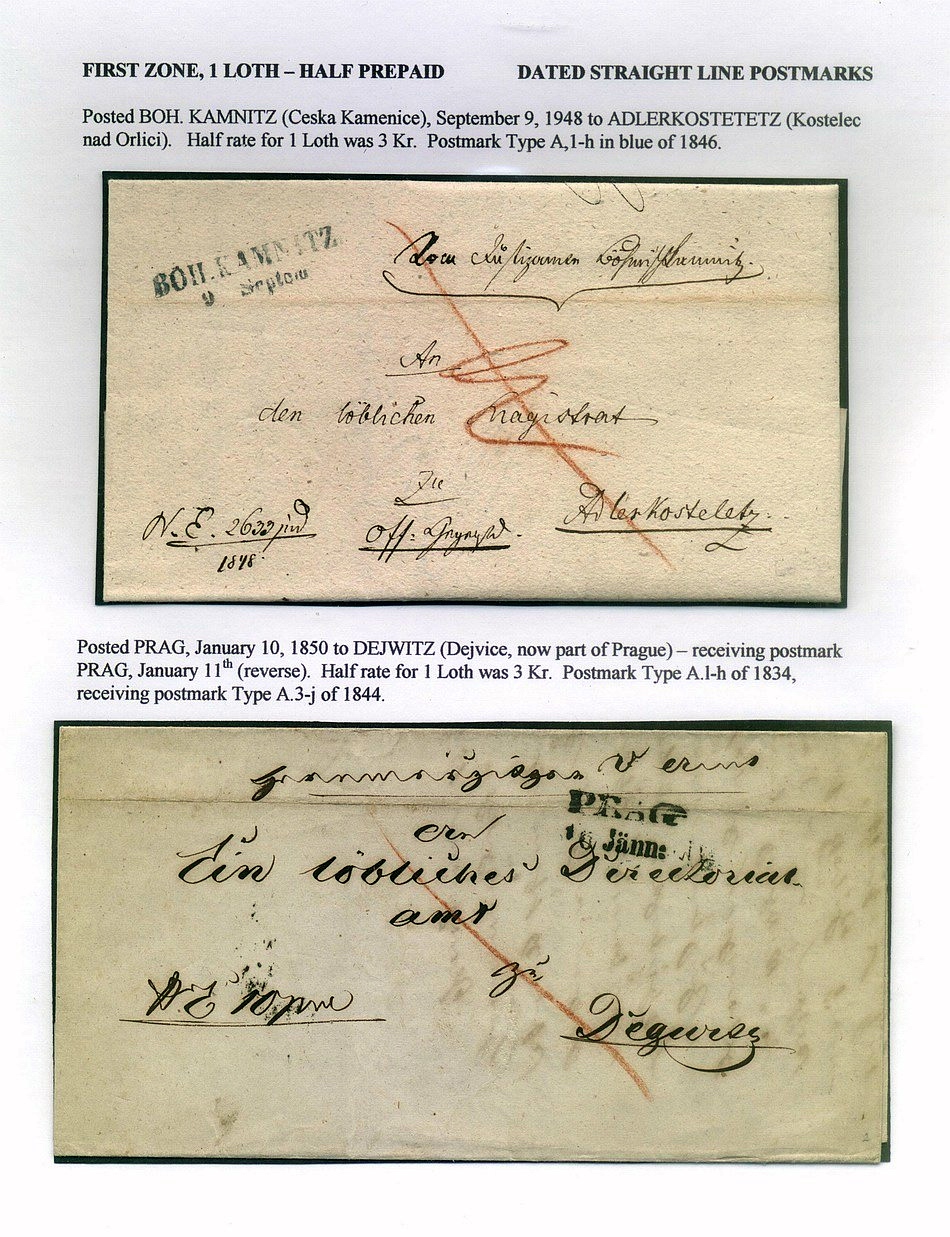 FIRST ZONE, 1 LOTH – HALF PREPAID DATED STRAIGHT LINE POSTMARKS
Posted BOH. KAMNITZ (Ceska Kamenice), September 9, 1948 to ADLERKOSTETETZ (Kostelec
nad Orlici). Half rate for 1 Loth was 3 Kr. Postmark Type A,1-h in blue of 1846.
BÖH. KAMNITZ
9 Septem
Vom Justizamte Böhmischkamnitz.
An
den löblichen Magistrat
zu
N. E. 2633 jud
1848
Off:
Adlerkosteletz.
Posted PRAG, January 10, 1850 to DEJWITZ (Dejvice, now part of Prague) – receiving postmark
PRAG, January 11th (reverse). Half rate for 1 Loth was 3 Kr. Postmark Type A.l-h of 1834,
receiving postmark Type A.3-j of 1844.
PRAG
10 Jänn:
an
Ein löbliches Directorial
amt
zu
N. E. 10
Degwisz